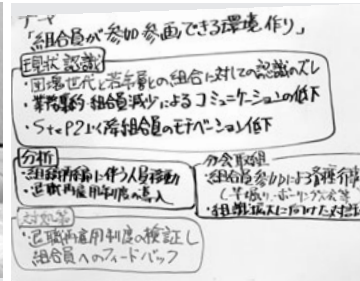 テーマ
「組合員が参加参画できる環境作り」
現状認識
・団塊世代と若年員との組合に対しての認識のズレ
・業務集約・組合員減少によるコミュニケーションの低下
・Step21以降組合員のモチベーション低下
分析
・組織再編に伴う人員移動
・退職再雇用制度の導入
分会取組
・組合員参加による各種行事
・組織拡大に向けた対話
対処策
・退職再雇用制度の検証し
組合員へのフィードバック